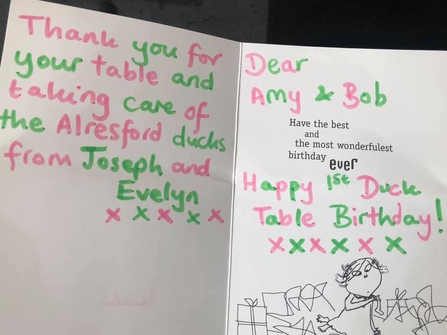 Thank you for
your table and
taking care of
the Alresford ducks
from Joseph and
Evelyn
x x x x x
Dear
Amy & Bob
Have the best
and
the most wonderfulest
birthday ever
Happy 1st Duck
Table Birthday!
x x x x x x